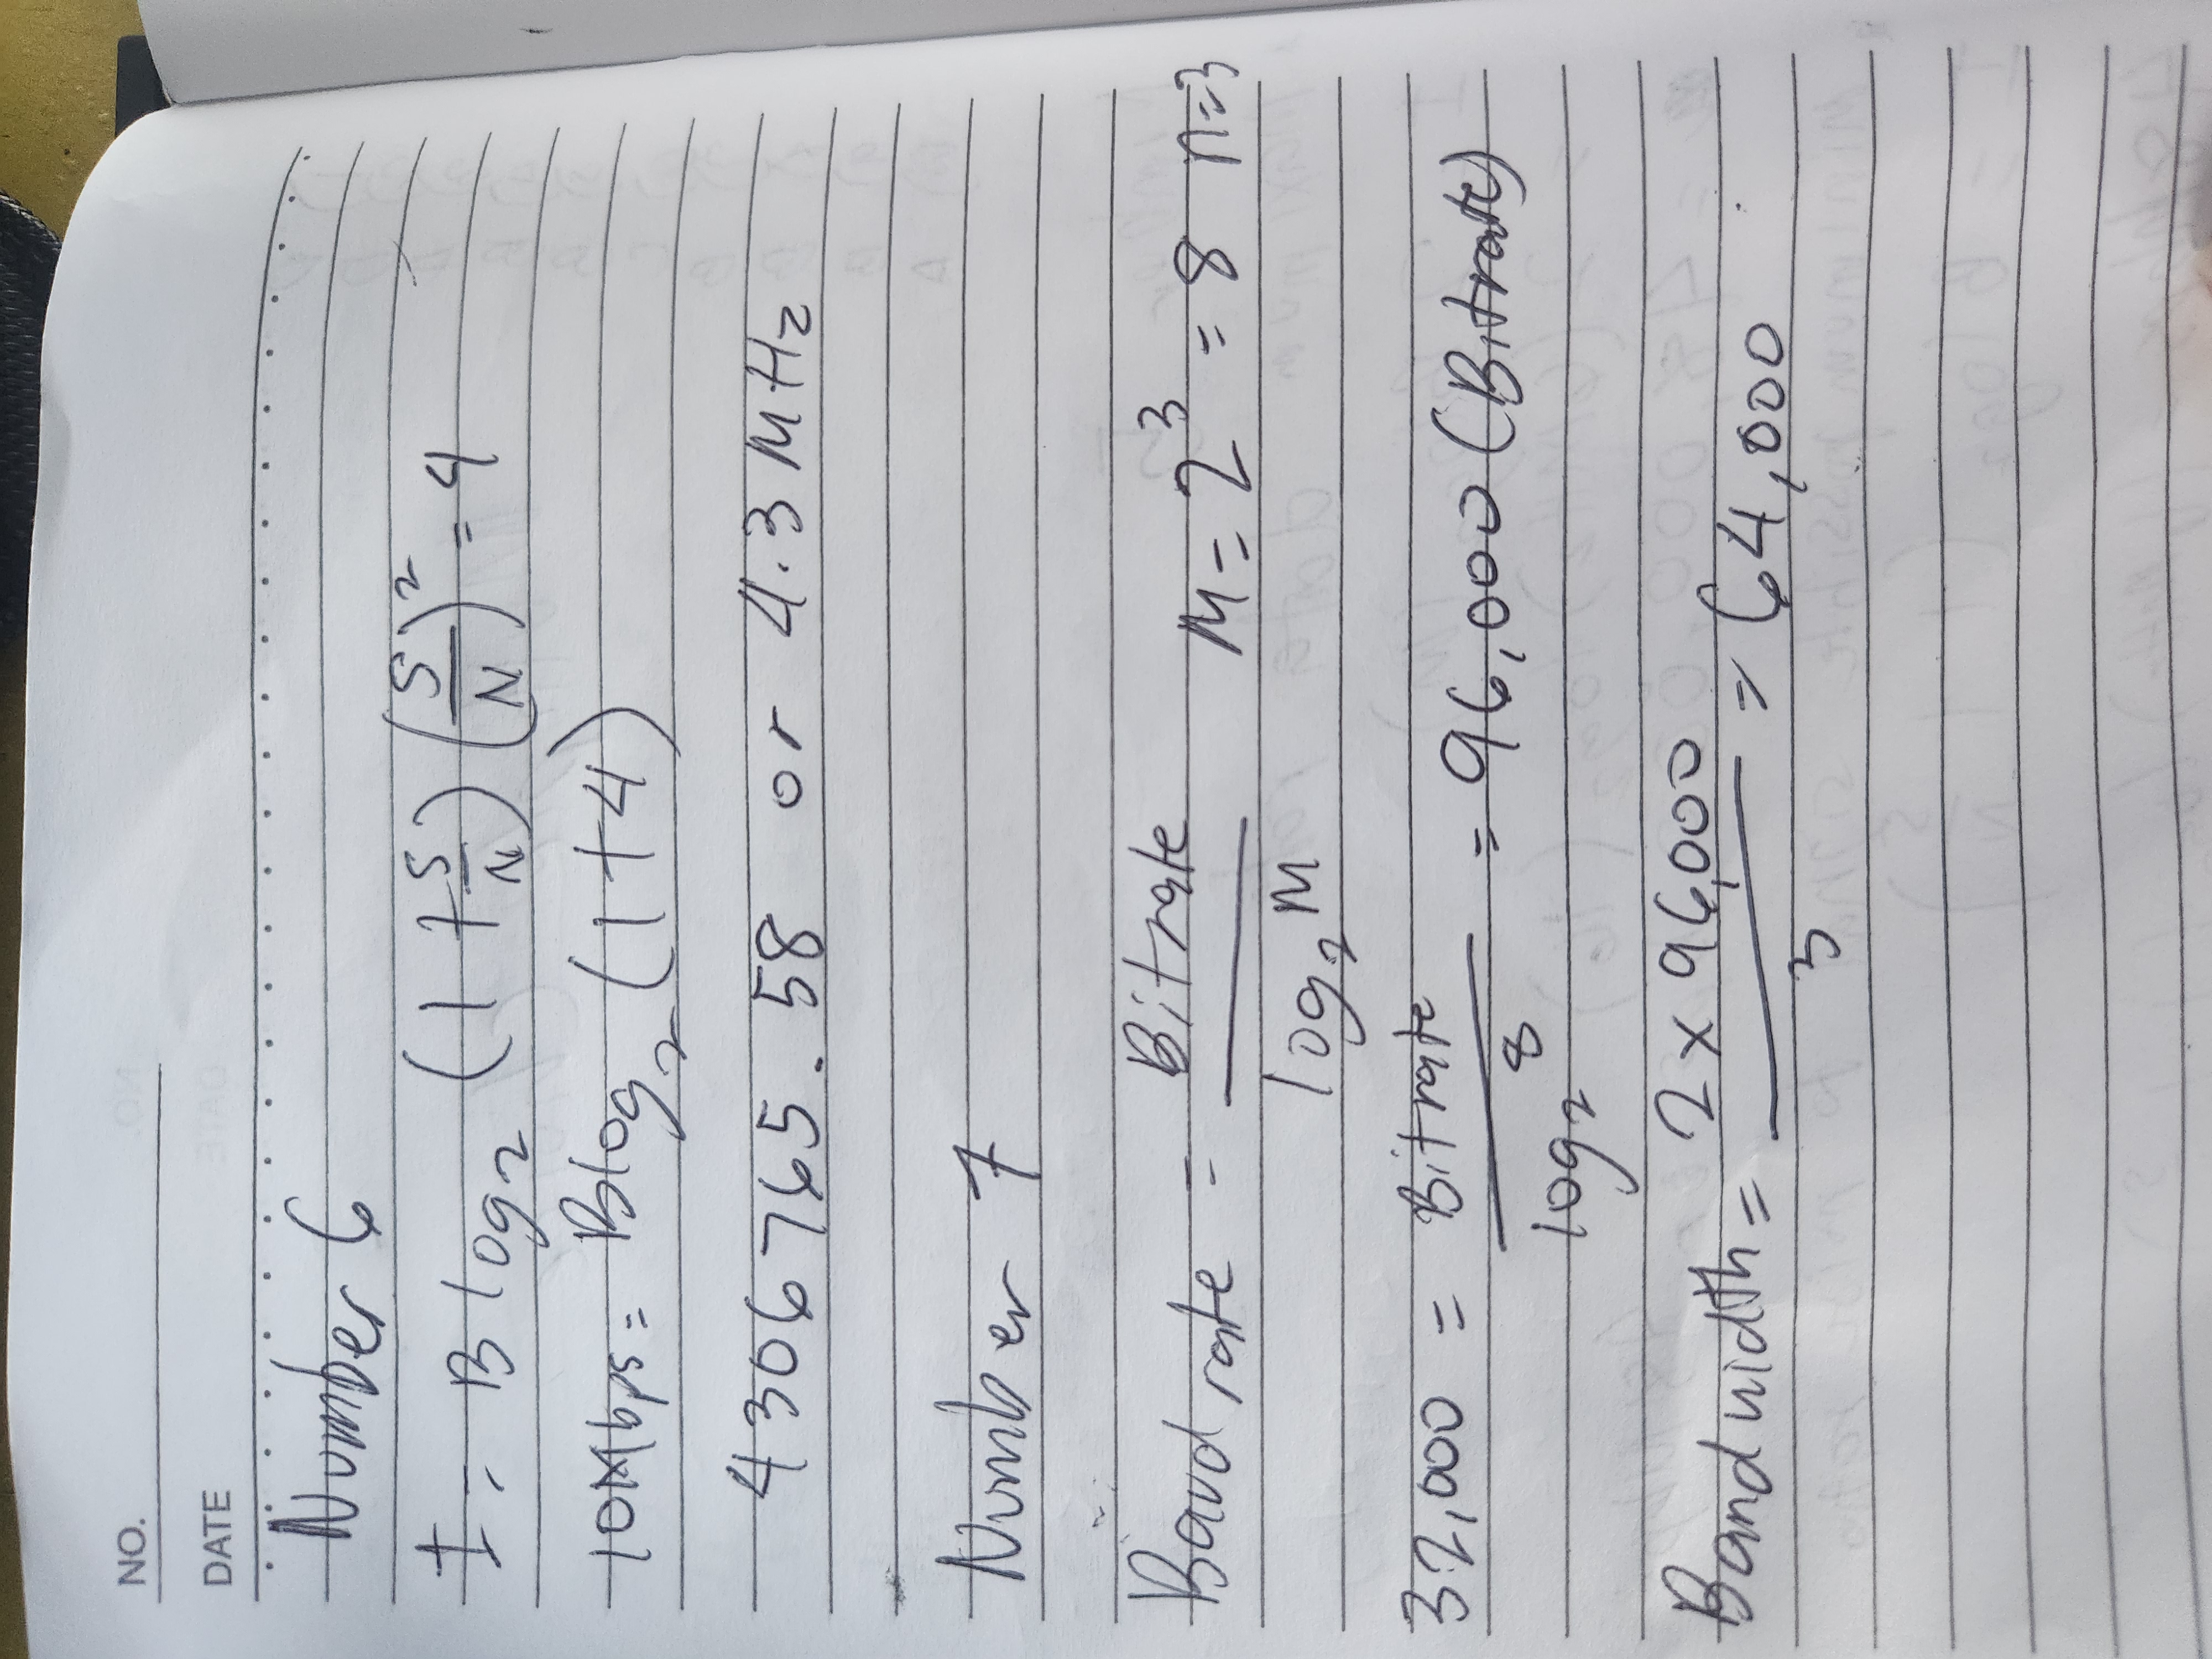 NO.
DATE
Number 6
I = B log₂ (1 + S/N) (S/N)² = 4
10Mbps = Blog₂ (1+4)
4306765.58 or 4.3 MHz
Number 7
Baud rate = Bitrate / log₂ M M = 2³ = 8 n=3
32,000 = Bitrate / log₂ 8 = 96,000 (Bitrate)
Bandwidth = 2 x 96,000 / 3 = 64,000